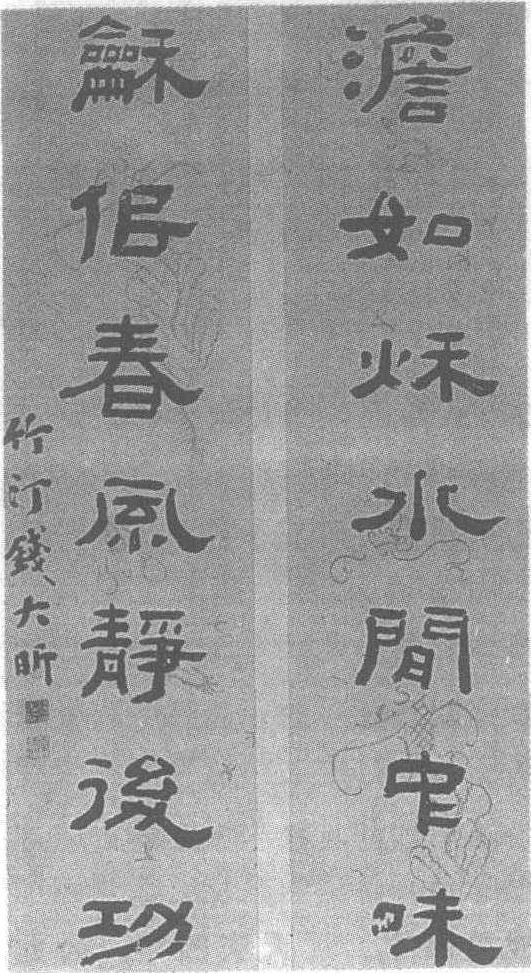 澹如秌水閒中味
龢佀春風靜後功
竹汀錢大昕